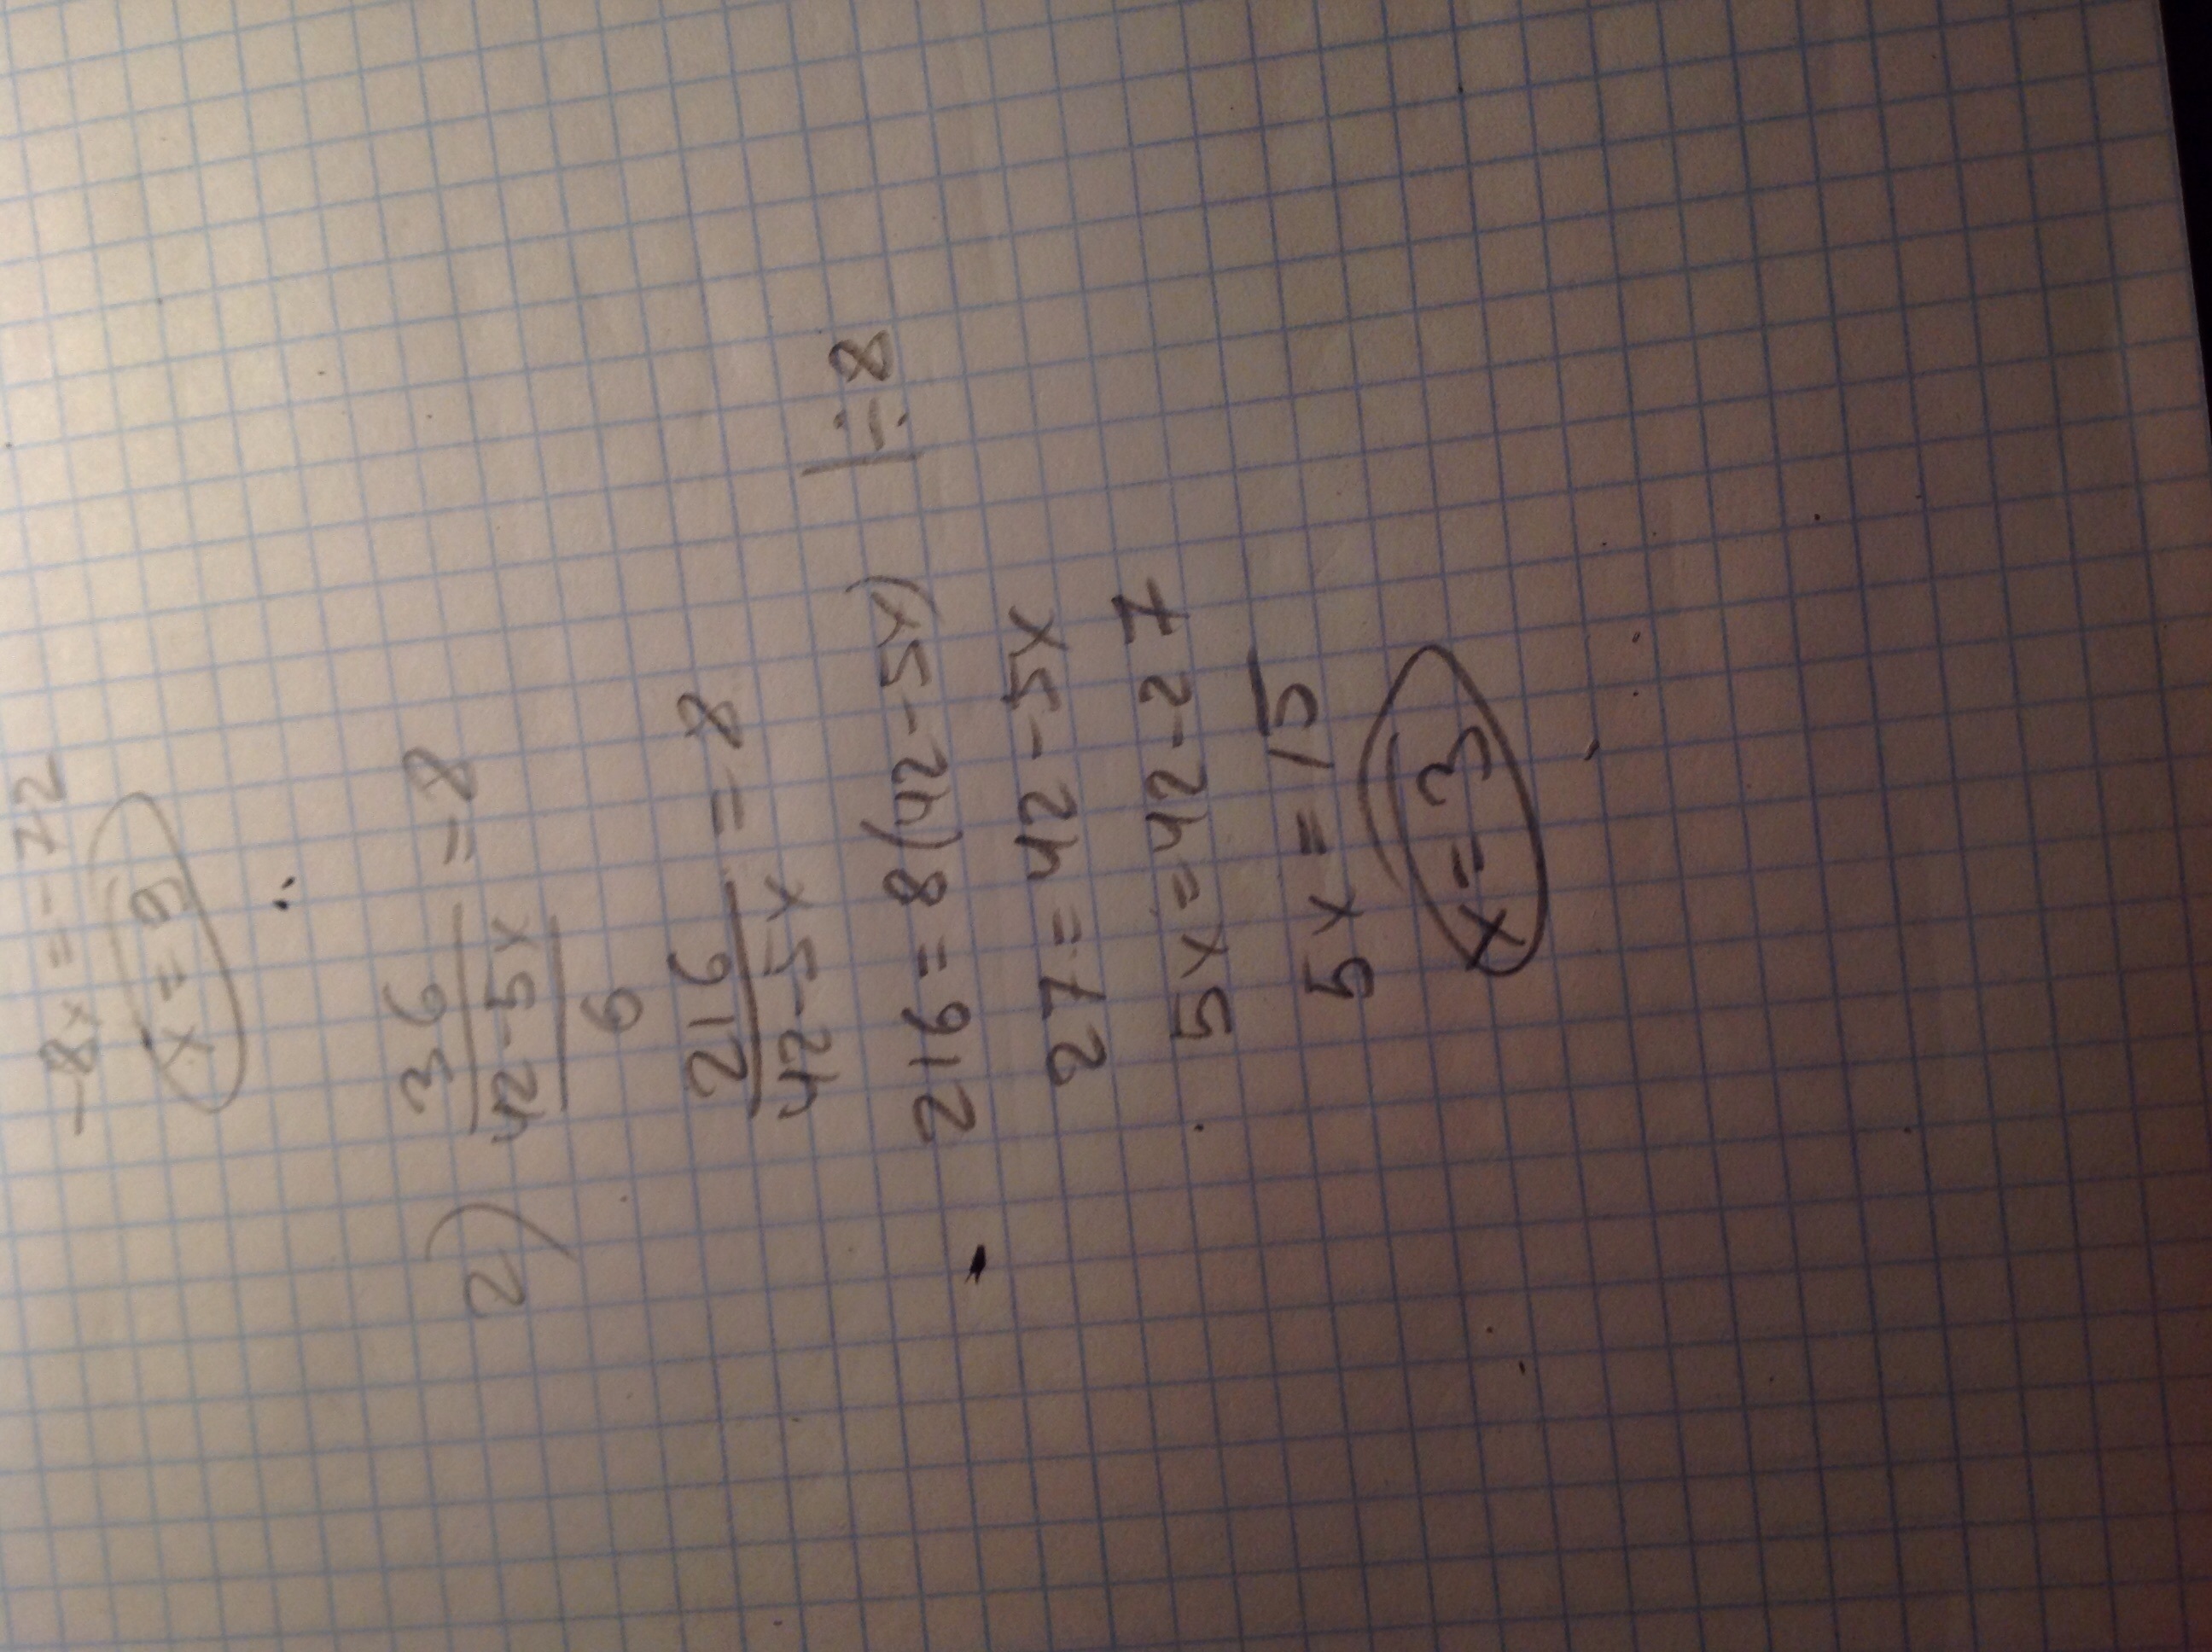 -8x = -72
x = 9
2) 36 / (42-5x / 6) = 8
216 / 42-5x = 8
216 = 8(42-5x) |÷8
27 = 42-5x
5x = 42-27
5x = 15
x = 3